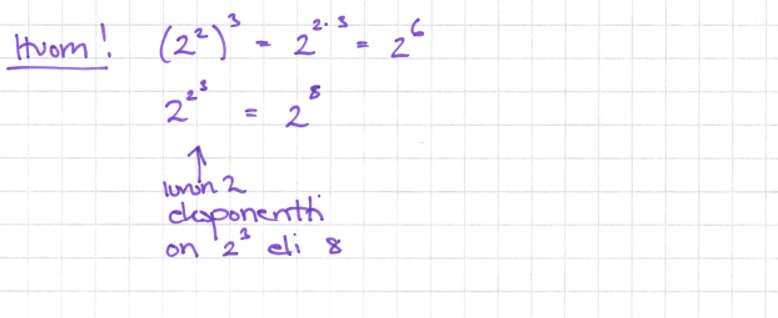 Huom! (2²)³ = 2^{2·3} = 2⁶
2^{2^3} = 2⁸
↑
luvun 2
eksponentti
on 2³ eli 8